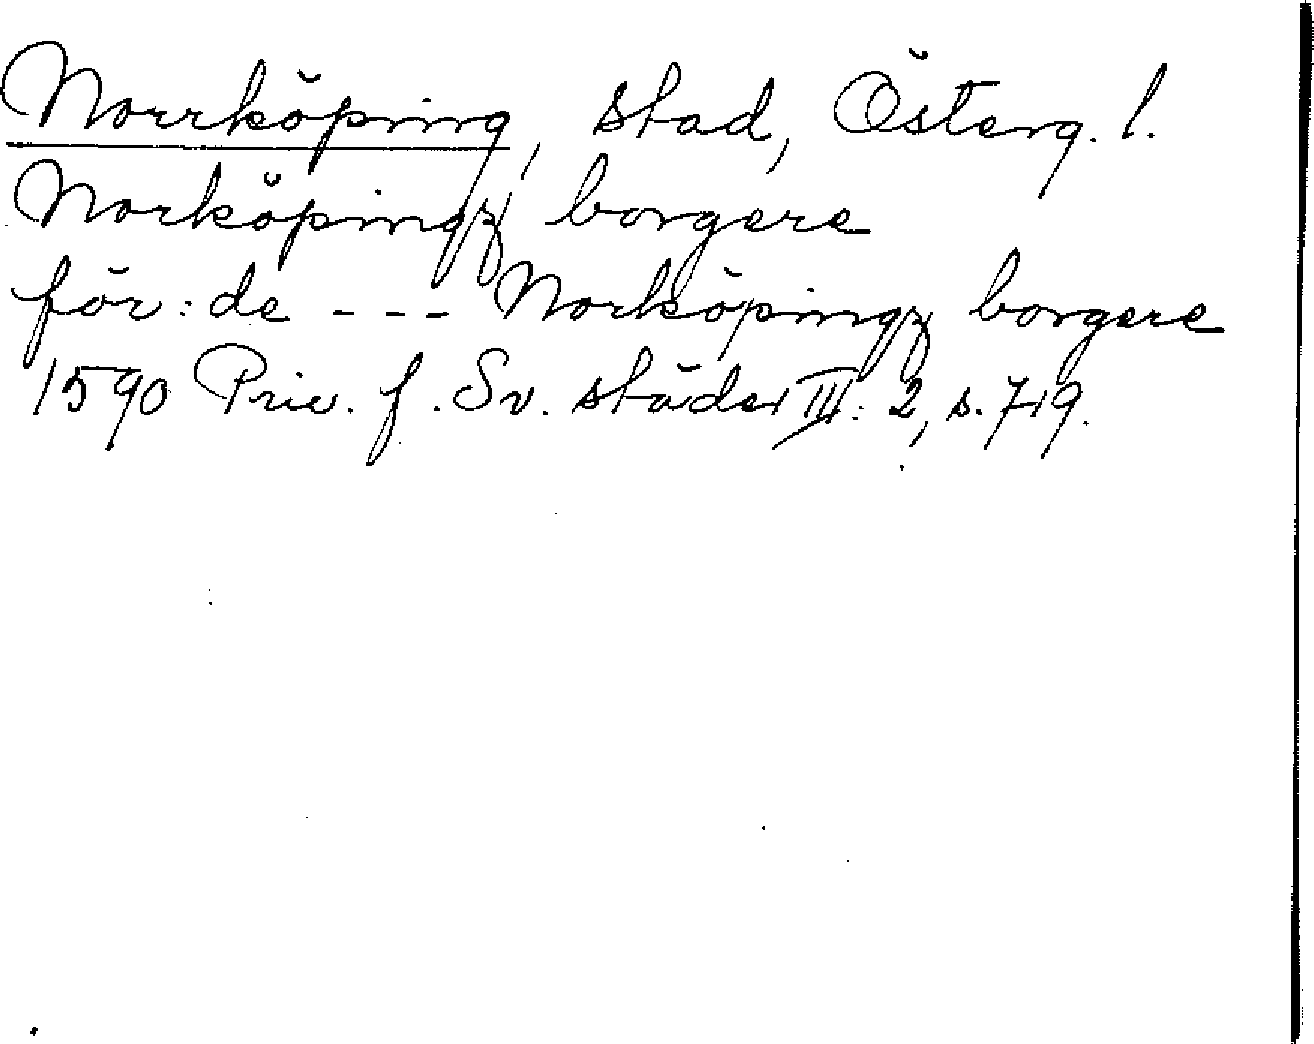 Norrköping, stad, Österg. l.
Norköpingz borgere
för: de - - - Norköpingz borgere
1590 Priv. f. Sv. städer III: 2, s. 719.